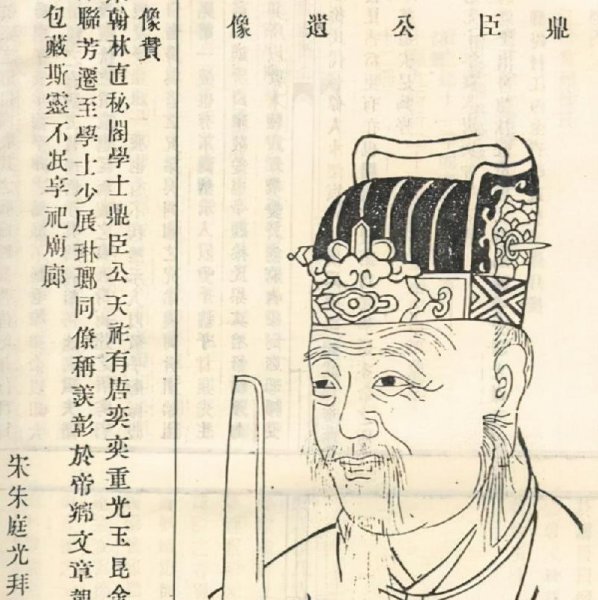 鼎臣公遺像
像贊
翰林直秘閣學士鼎臣公天祚有唐奕奕重光玉昆金
聯芳遷至學士少展琳瑯同僚稱羨彰於帝鄉文章報
包藏斯靈不泯享祀廟廊
宋朱庭光拜